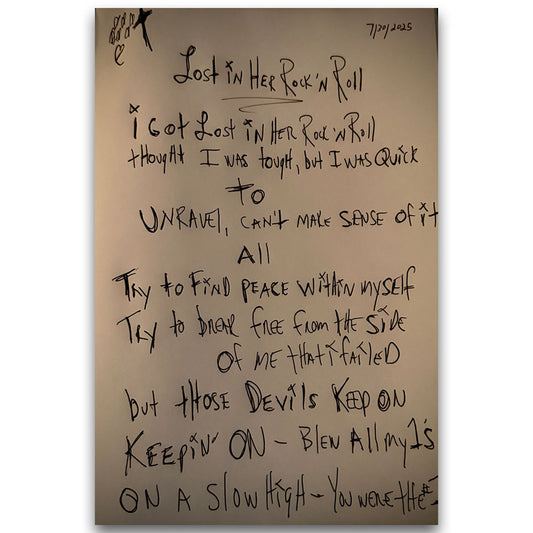 7/20/2025
Lost in Her Rock 'N Roll
i Got Lost in Her Rock 'N Roll
thought I was tough, but I was Quick
to
UNRAVEl, can't make sense of it
All
Try to Find peace within myself
Try to break free from the side
of me that i failed
but those Devils Keep ON
KEEpiN' ON - Blew All my 1's
ON A Slow High - You were the #